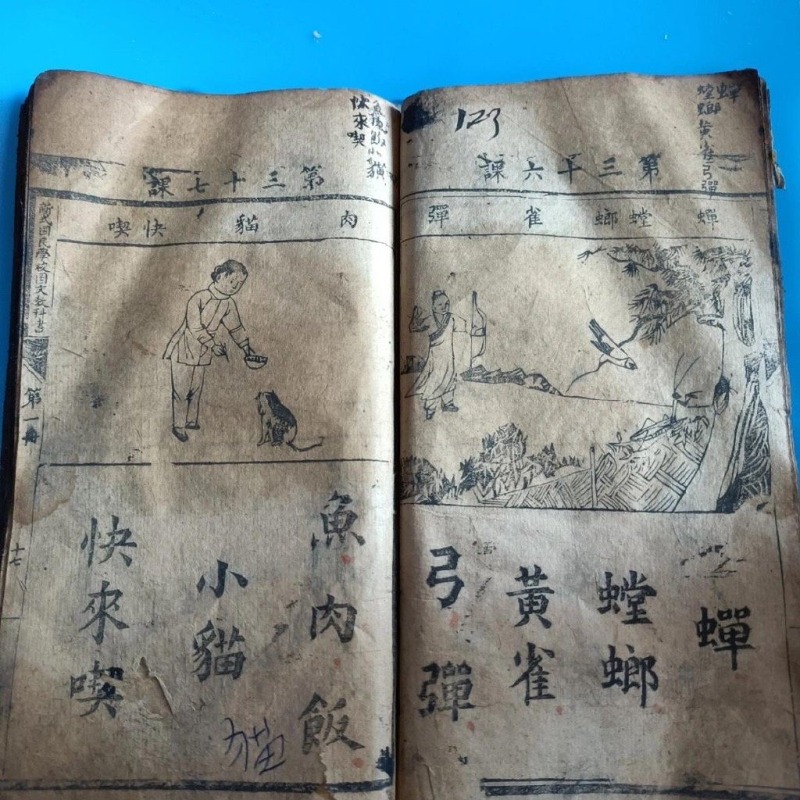 蟬
螳螂黃雀弓彈
第三十六課
蟬 螳螂 雀 彈
蟬
螳螂
黃雀
弓彈
小貓
快來喫
第三十七課
肉 貓 快喫
魚肉飯
小貓
快來喫
猫
国民學校国文教科書
第一冊
十七